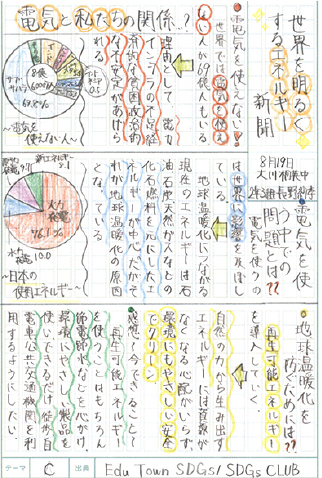 世界を明るく
するエネルギー
新聞
8月19日
電気と私たちの関係!?
電気を使えない
ない人が6.9億人もいる
世界では電気を使え
理由として、電力
インフラの不足、経
済的な貧困、政治的
な不安定があげら
れる
サブ・サハラ
〜電気を
使えない人〜
電気を使
う中での
問題とは??
電気を使うの
は世界に影響を及ぼし
ている
地球温暖化につながる
現在のエネルギーは石
油、石炭、天然ガスなどの
化石燃料を元にしたエ
ネルギーが中心だからで
それが地球温暖化の原因
となっている
火力
発電
76.1%
水力
発電 10.0
〜日本の
使用エネルギー〜
地球温暖化を
防ぐためには??
再生可能エネルギー
を導入していく。
自然の力から生み出す
エネルギーには資源が
なくなる心配がいらず、
環境にもやさしい安全
でクリーン
感想、今できること
再生可能エネルギー
を使うのはもちろん
節電節水などを心がけ、
環境にやさしい製品を
使いできるだけ徒歩、自
電車、公共交通機関を利
用するようにしたい。
テーマ C 出典 Edu Town SDGs/ SDGs CLUB